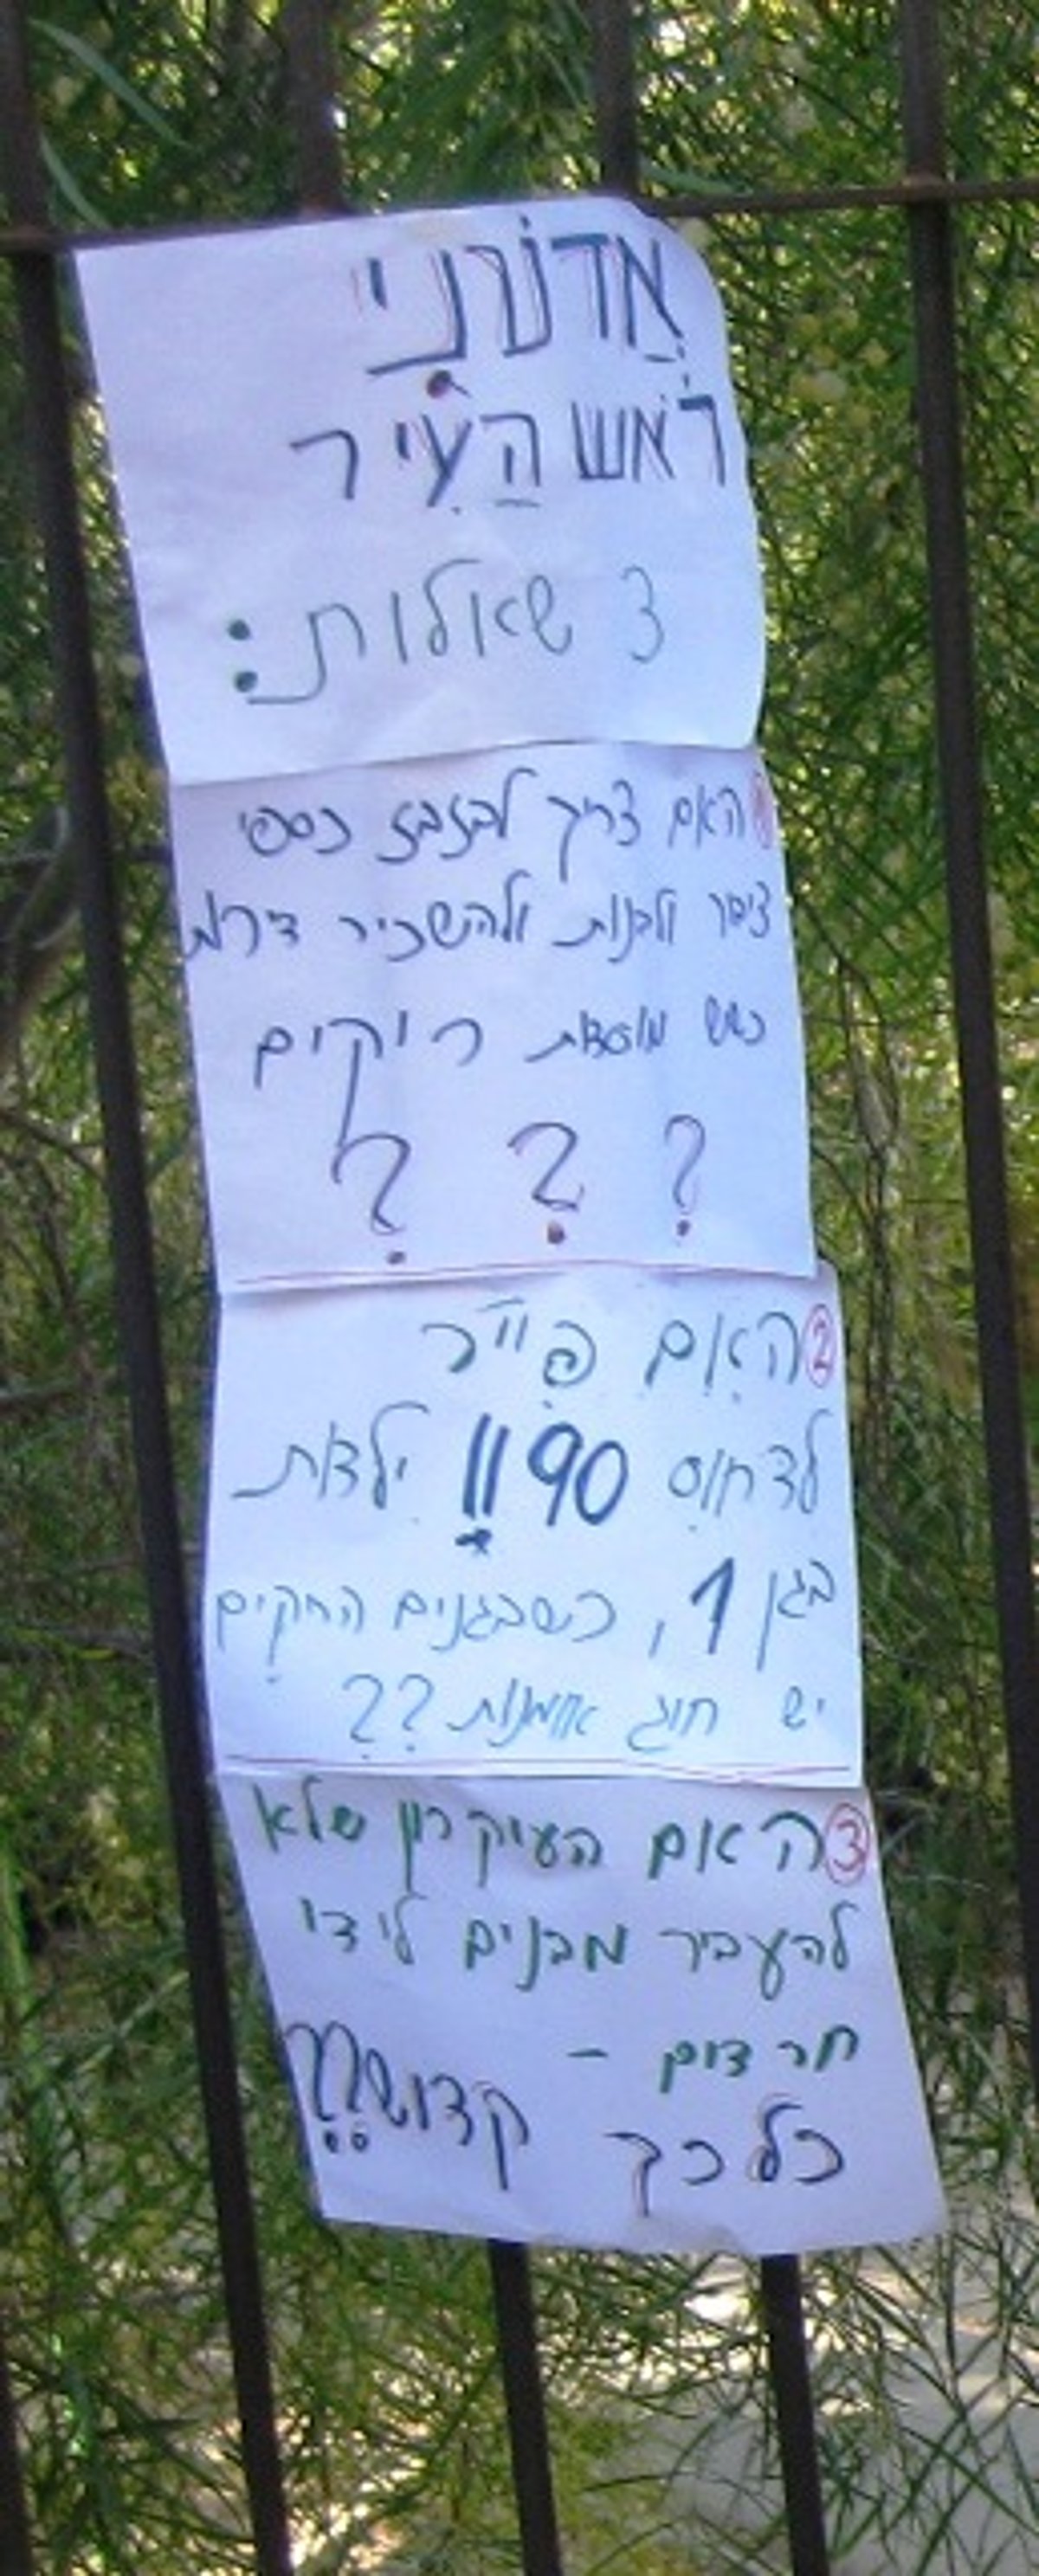 אֲדוֹנִי
רֹאש הַעִיר
3 שאלות:
האם צריך לבזבז כספי
ציבור ולבנות ולהשכיר דירות
כשש מוסדות ריקים
? ? ?
② האִם פייר
לדחוס 90!! ילדות
בגן 1, כשבגנים הריקים
יש חוג אומנות??
③ האם העיקרון שלא
להעביר מבנים לידי
חרדים -
כל כך קדוש??